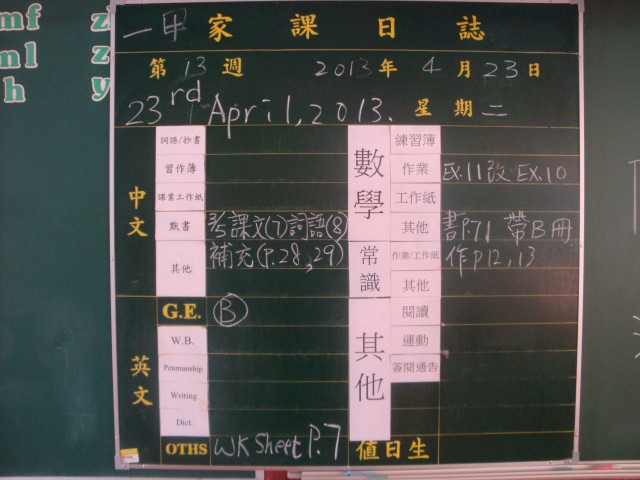 mf z
nl z
h y
一甲 家課日誌
第13週 2013年4月23日
23rd April, 2013. 星期二
中文
詞語/抄書
習作簿
課業工作紙
默書 課文(7)詞語(8)
其他 補充(P.28,29)
英文
G.E. B
W.B.
Penmanship
Writing
Dict.
OTHS WK Sheet P.7
數學
練習簿
作業 Ex.11改 Ex.10
工作紙
其他 書P.71 帶B冊
常識
作業/工作紙 作P12,13
其他
其他
閱讀
運動
簽閱通告
值日生